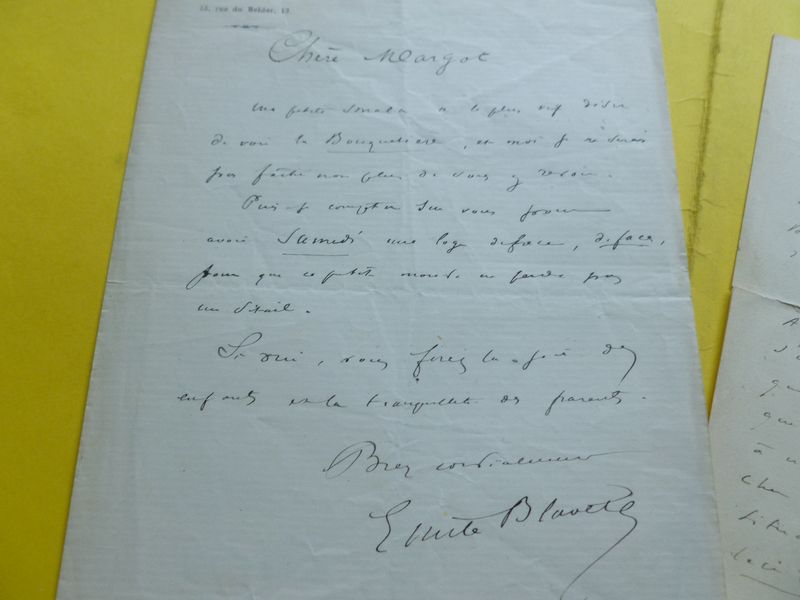 13, rue du Helder, 13.
Chère Margot
Ma petite smala a le plus vif désir
de voir la Bouquetière, et moi je ne serais
pas fâché non plus de vous y revoir.
Puis-je compter sur vous pour
avoir Samedi une loge de face, de face,
pour que ce petit monde ne perde pas
un détail.
Si oui, vous ferez la joie des
enfants et la tranquillité des parents.
Bien cordialement
Emile Blavet
à
que